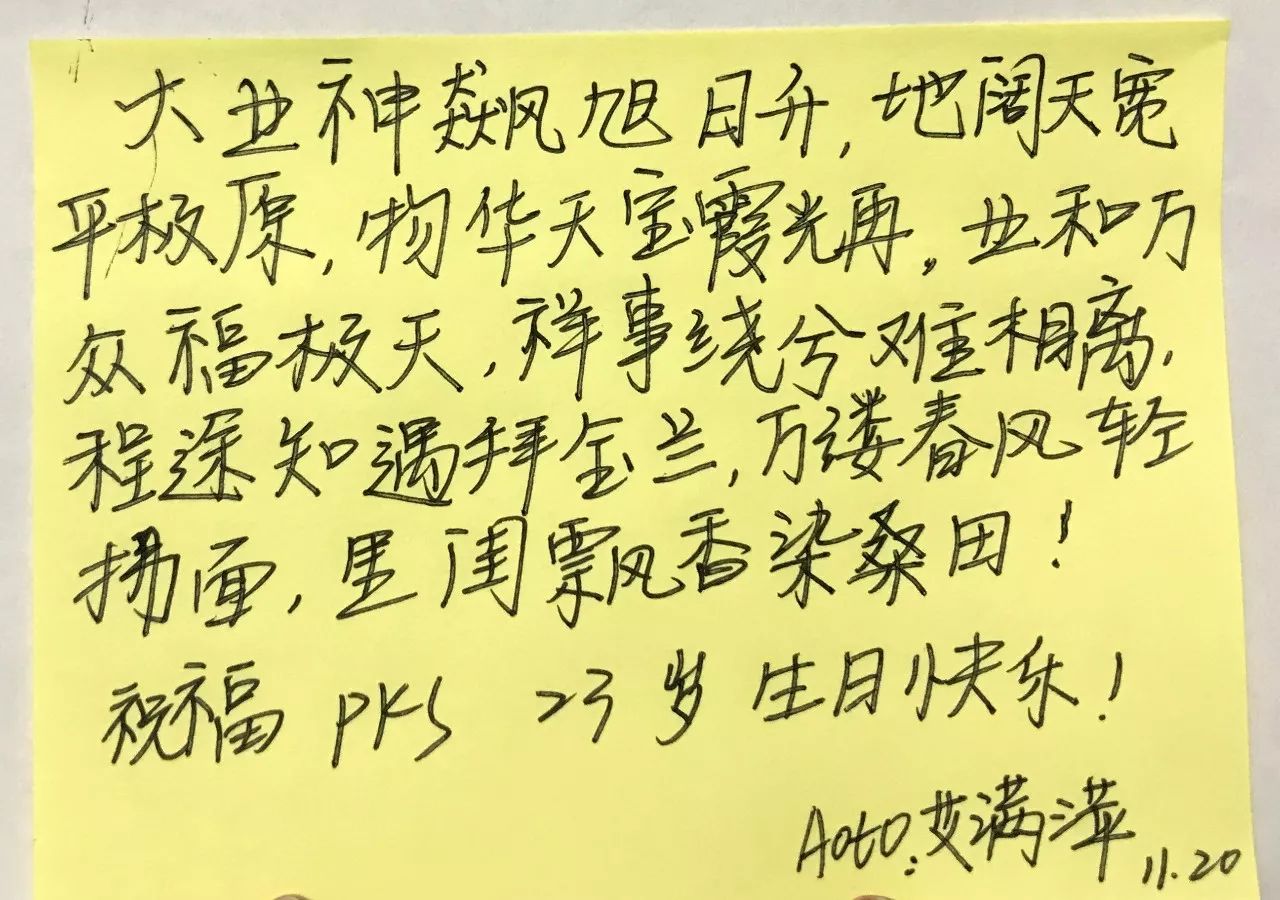 大业神飙旭日升,地阔天宽
平极原,物华天宝霞光再。业和万
众福极天,祥事绕兮难相离.
程途知遇拜金兰,万缕春风轻
拂面,里闺飘香染桑田!
祝福 PKS 23岁 生日快乐!
Aoto:艾满萍 11.20